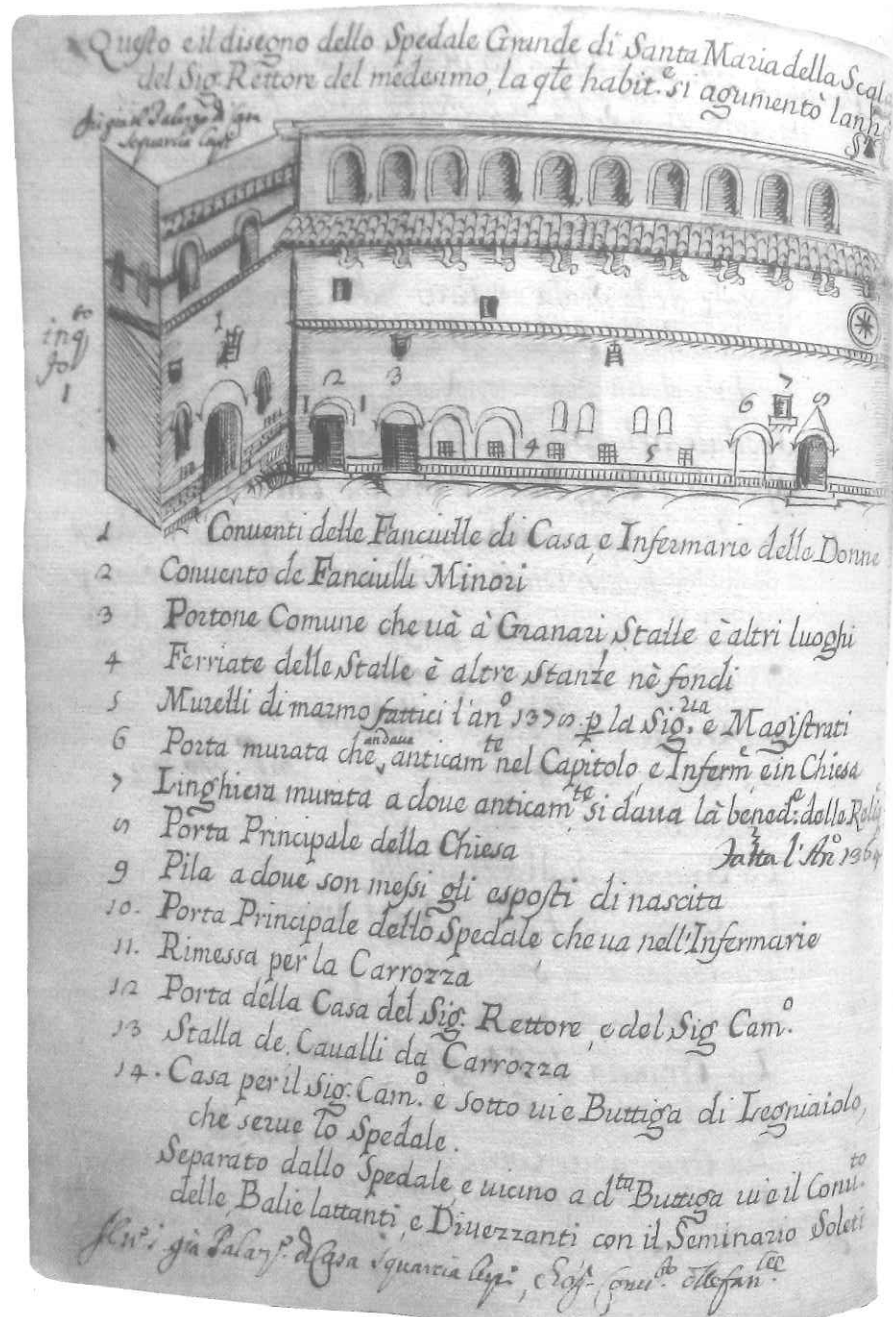 Questo e il disegno dello Spedale Grande di Santa Maria della Scal
del Sig. Rettore del medesimo, la qte habit.e si agumentò lann
1
2
3
1 1
4
5
6
7
8
1 Conuenti delle Fanciulle di Casa, e Infermarie delle Donne
2 Conuento de Fanciulli Minori
3 Portone Comune che uà à Granari Stalle è altri luoghi
4 Ferriate delle Stalle è altre Stanze nè fondi
5 Murelli di marmo fattici l'ano 1378. p la Sig.ria e Magistrati
6 Porta murata che andaua anticamte nel Capitolo, e Inferm, e in Chiesa
7 Linghiera murata a doue anticamte si daua là bened:e delle Reliq
8 Porta Principale della Chiesa fatta l'Ano 1364
9 Pila a doue son messi gli esposti di nascita
10. Porta Principale dello Spedale che ua nell'Infermarie
11. Rimessa per la Carrozza
12 Porta della Casa del Sig. Rettore, e del Sig Cam.o
13 Stalla de Caualli da Carrozza
14. Casa per il Sig: Cam.o e sotto ui e Buttiga di Legniaiolo,
che serue lo Spedale.
Separato dallo Spedale, e uicino a dta Buttiga ui e il Conu.to
delle Balie lattanti, e Diuezzanti con il Seminario Soleti
già Palaz.o d Casa Squarcia